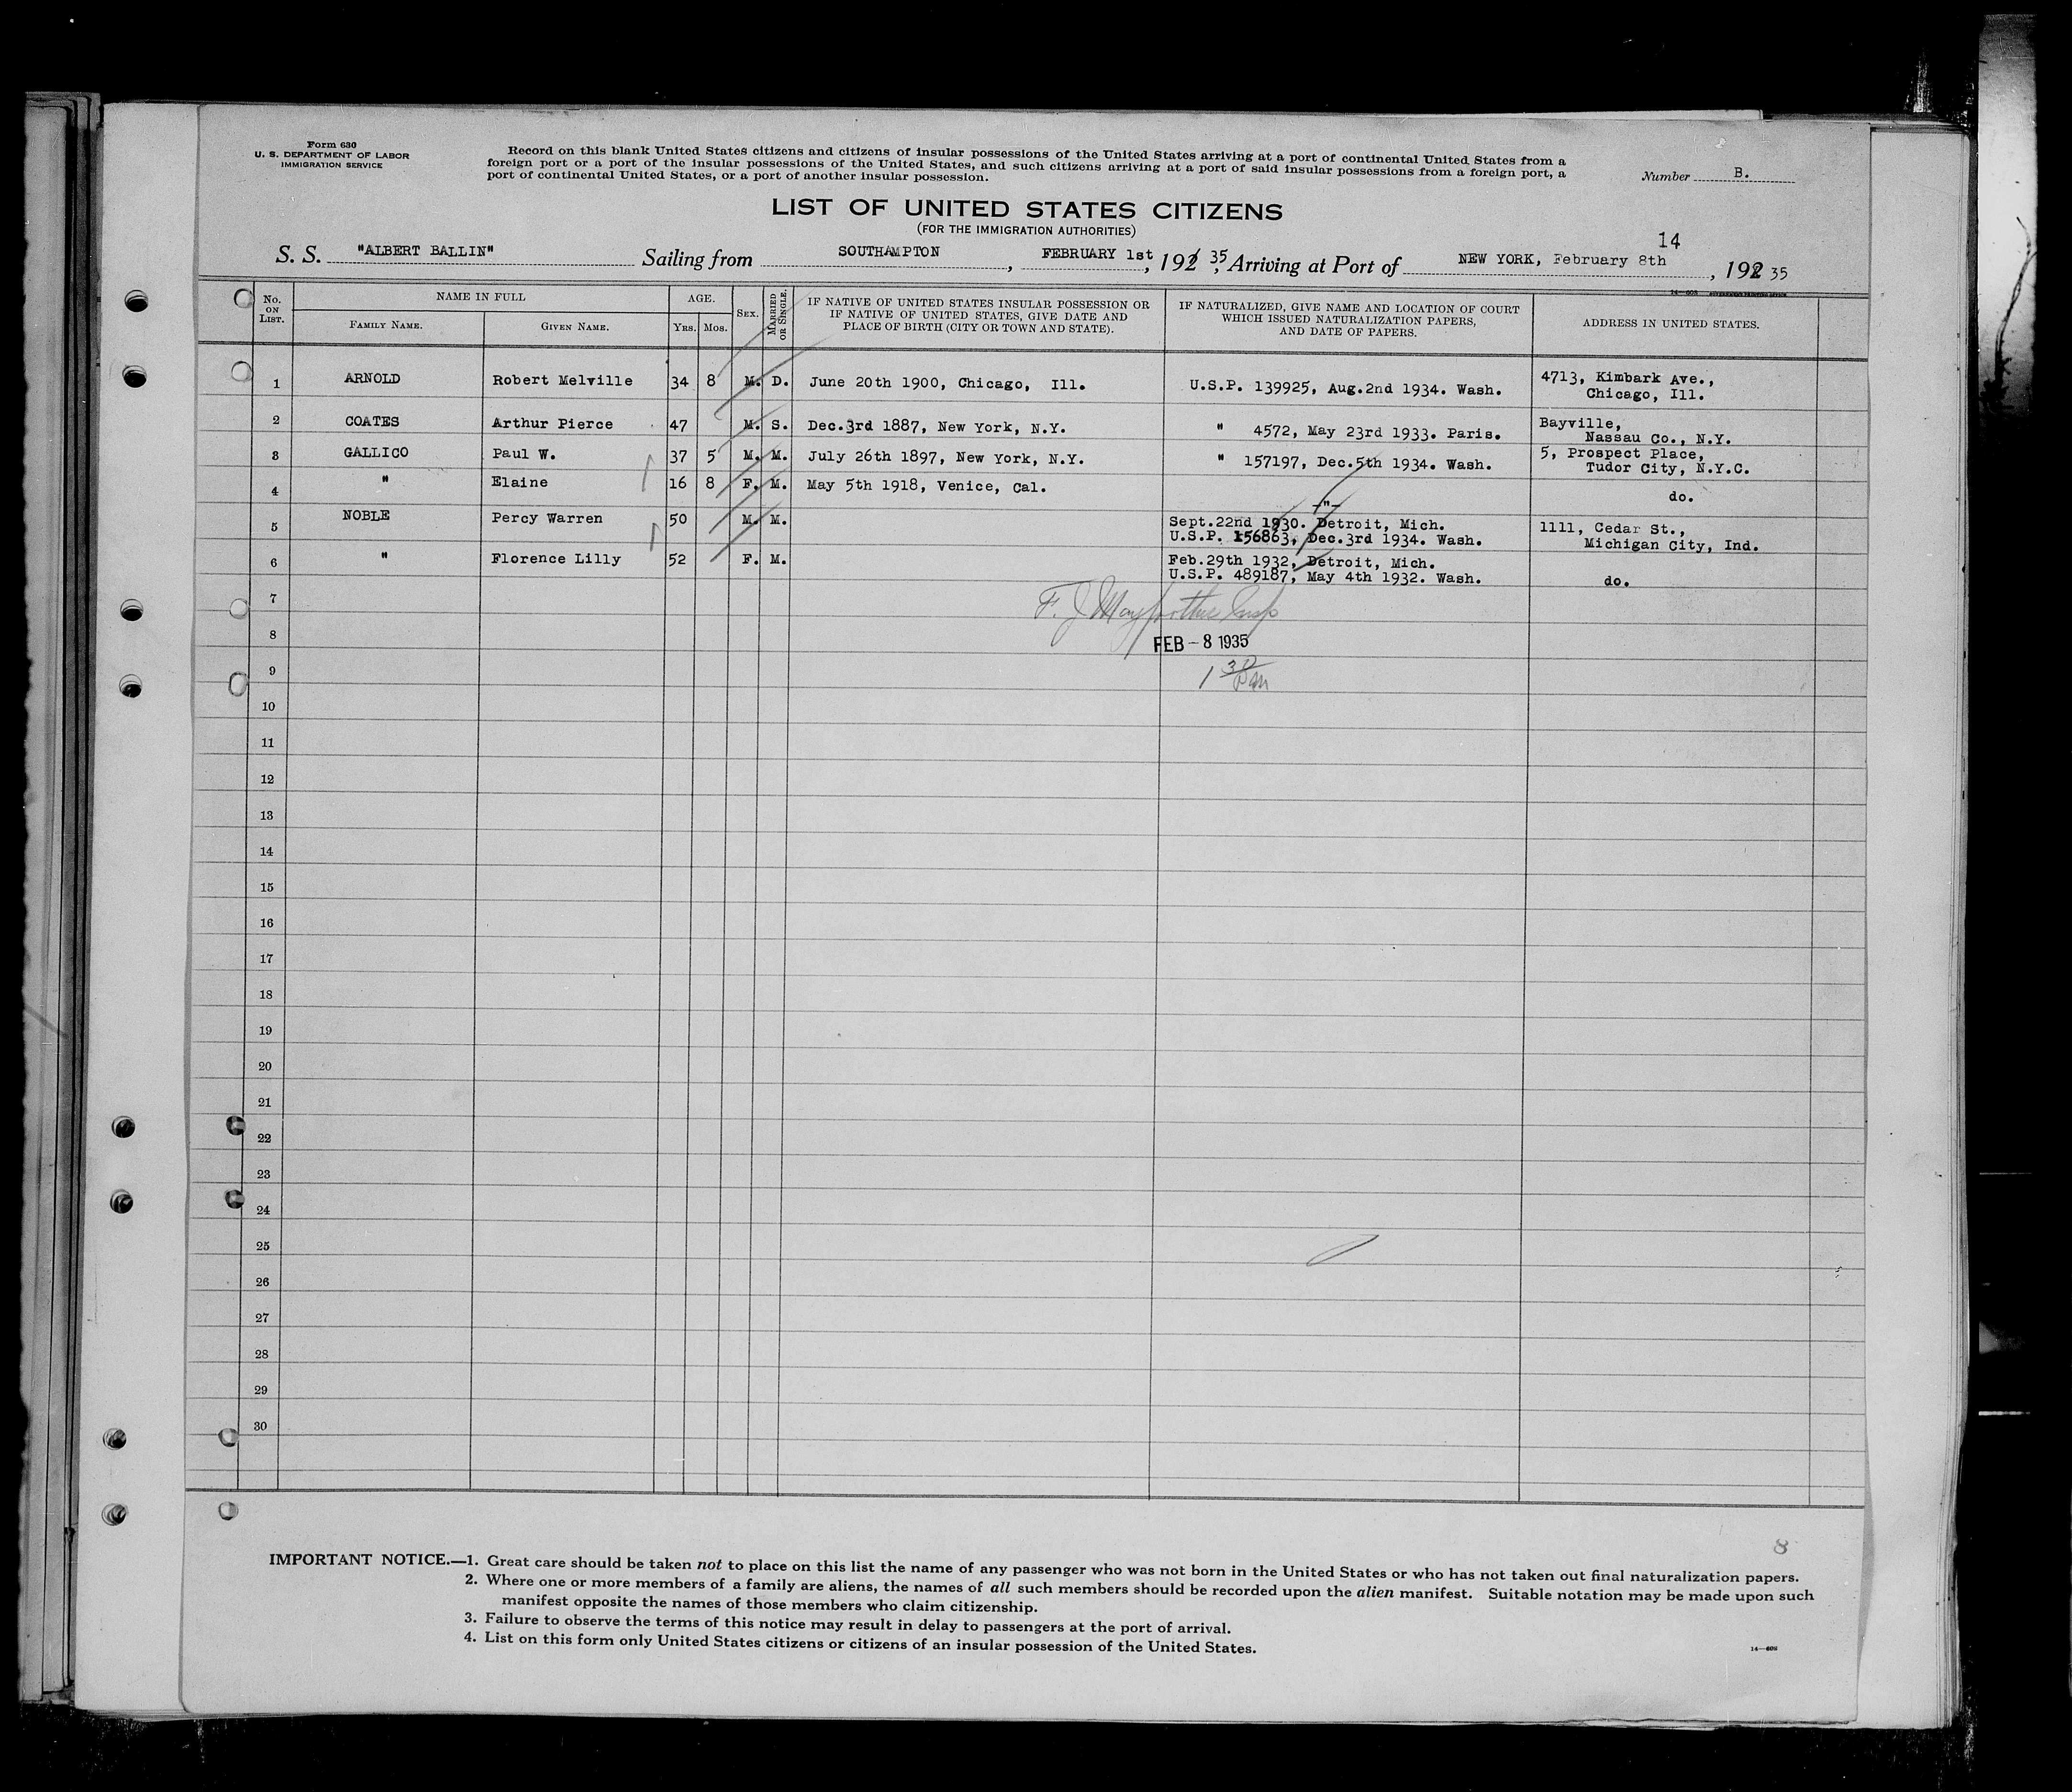 Form 630
U. S. DEPARTMENT OF LABOR
IMMIGRATION SERVICE
Record on this blank United States citizens and citizens of insular possessions of the United States arriving at a port of continental United States from a
foreign port or a port of the insular possessions of the United States, and such citizens arriving at a port of said insular possessions from a foreign port, a
port of continental United States, or a port of another insular possession.
Number B.
LIST OF UNITED STATES CITIZENS
(FOR THE IMMIGRATION AUTHORITIES)
14
S. S. "ALBERT BALLIN" Sailing from SOUTHAMPTON, FEBRUARY 1st, 192 35, Arriving at Port of NEW YORK, February 8th, 192 35
No. ON LIST.
NAME IN FULL
FAMILY NAME.
GIVEN NAME.
AGE.
Yrs. Mos.
SEX.
MARRIED OR SINGLE.
IF NATIVE OF UNITED STATES INSULAR POSSESSION OR
IF NATIVE OF UNITED STATES, GIVE DATE AND
PLACE OF BIRTH (CITY OR TOWN AND STATE).
IF NATURALIZED, GIVE NAME AND LOCATION OF COURT
WHICH ISSUED NATURALIZATION PAPERS,
AND DATE OF PAPERS.
ADDRESS IN UNITED STATES.
1 ARNOLD Robert Melville 34 8 M. D. June 20th 1900, Chicago, Ill. U.S.P. 139925, Aug.2nd 1934. Wash. 4713, Kimbark Ave.,
Chicago, Ill.
2 COATES Arthur Pierce 47 M. S. Dec.3rd 1887, New York, N.Y. " 4572, May 23rd 1933. Paris. Bayville,
Nassau Co., N.Y.
3 GALLICO Paul W. 37 5 M. M. July 26th 1897, New York, N.Y. " 157197, Dec.5th 1934. Wash. 5, Prospect Place,
Tudor City, N.Y.C.
4 " Elaine 16 8 F. M. May 5th 1918, Venice, Cal. -"- do.
5 NOBLE Percy Warren 50 M. M. Sept.22nd 1930. Detroit, Mich. 1111, Cedar St.,
U.S.P. 156863, Dec.3rd 1934. Wash. Michigan City, Ind.
6 " Florence Lilly 52 F. M. Feb.29th 1932, Detroit, Mich.
U.S.P. 489187, May 4th 1932. Wash. do.
7
F. J. Insp
8
FEB - 8 1935
9
1 30 PM
10
11
12
13
14
15
16
17
18
19
20
21
22
23
24
25
26
27
28
29
30
8
IMPORTANT NOTICE.—1. Great care should be taken not to place on this list the name of any passenger who was not born in the United States or who has not taken out final naturalization papers.
2. Where one or more members of a family are aliens, the names of all such members should be recorded upon the alien manifest. Suitable notation may be made upon such
manifest opposite the names of those members who claim citizenship.
3. Failure to observe the terms of this notice may result in delay to passengers at the port of arrival.
4. List on this form only United States citizens or citizens of an insular possession of the United States.
14—608